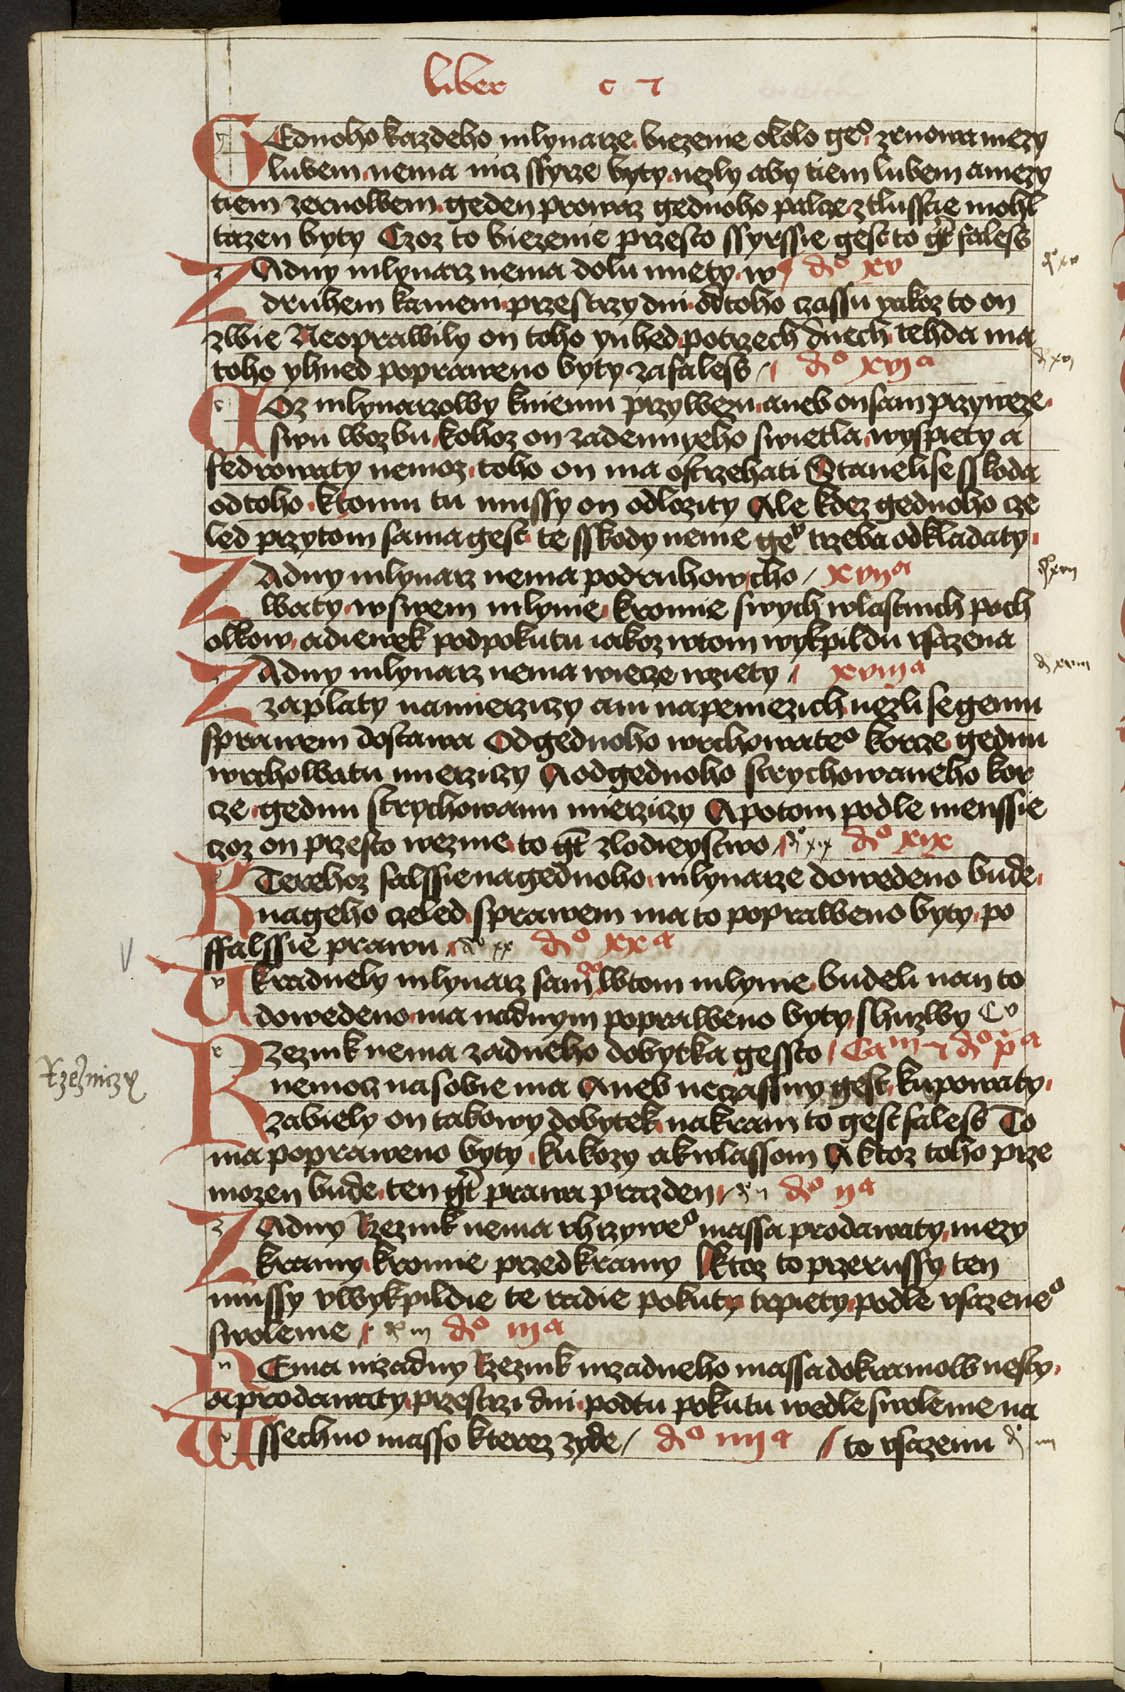 liber c 7
GEdnoho kazdeho mlynarze biezenie okolo geº zrnowa mezy
lubem nema nicz ssyrze byty nezly aby tiem lubem a mezy
tiem zernowem geden prowaz gednoho palcze ztlusscie mohl
tazen byty Czoz to biezenie przesto ssyrssie gest to gt faless
ZAdny mlynarz nema dolu mety w dº xv
druhem kameni przes trzy dni od toho czassu yakoz to on
zwie Neoprawily on toho ynhed po trzech dnech tehda ma
toho yhned popraweno byty za faless dº xvjª
COz mlynarzowy kniemu przywezu aneb on sam przyweze
swu wozbu kohoz on zademi yeho swietla wyspiety a
fedrowaty nemoz toho on ma ostrzehati Stanelise sskoda
od toho ktomu tu mussy on odlozity Ale kdez gednoho cze
led przytom sama gest te sskody nenie geº trzeba odkladaty
ZAdny mlynarz nema podruhow cho xvijª
waty w swem mlynie kromie swych wlastnich pach
olkow a diewek pod pokutu iakoz wtom wykpildu vsazena
ZAdny mlynarz nema wiecze wziety xviijª
zaplaty na mierziczy ani na peniezich nezli se gemu
sprawem dostawa Od gednoho wrchowateº korcze gednu
wrchowatu mierziczy A od gednoho strychowaneho kor
cze gednu strychowanu mierziczy A potom podle menssie
czoz on przesto wezme to gt zlodieystwo dº xix dº xix
KTerehoz falssie na gednoho mlynarze dowedeno bude
na geho czeled sprawem ma to popraweno byty po
ffalssie prawu dº xx dº xxª
Ukradnely mlynarz sam wtom mlynie budeli nan to
dowedeno ma nad nym popraweno byty shuzby Co
RZeznik nema zadneho dobytka gessto Cam 7 dº pª
nemocz na sobie ma Aneb neczassny gest kupowaty
zabiely on takowy dobytek na kram to gest faless To
ma popraweno byty kukozy a kwlassom A ktoz toho prze
mozen bude ten gt prawa prazden dº ijª
ZAdny Rzeznik nema vhrzyweº massa prodawaty mezy
kramy kromie przed kramy A ktoz to przerussy ten
mussy vwykpildie te radie pokuty trpiety podle vsazeneº
swolenie dº iijª
NEma nizadny Rzeznik nizadneho massa do kramow nesty
a prodawaty przes trzi dni podtu pokutu wedle swolenie na
Wssechno masso kterez zyde dº iiijª to vsazenu
Rzezniczy